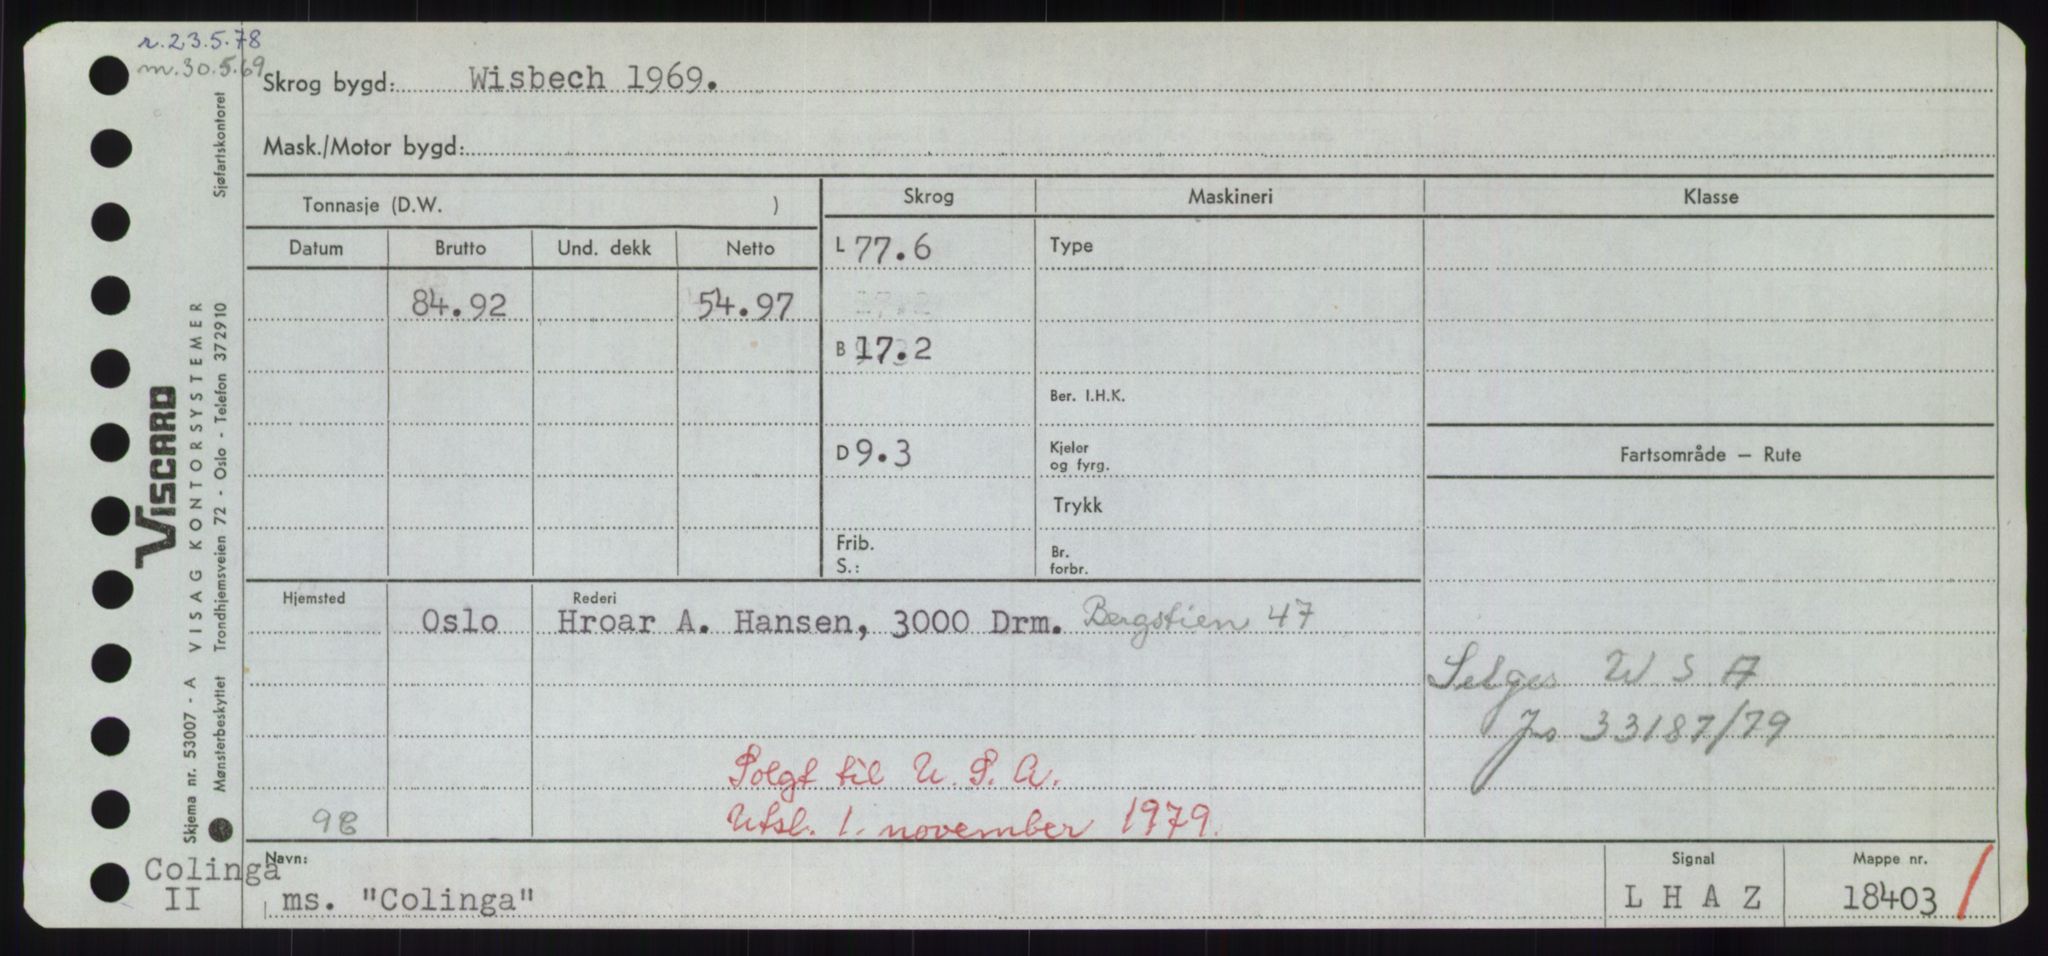 r.23.5.78
m.30.5.69
Skrog bygd: Wisbech 1969.
Mask./Motor bygd:
Tonnasje (D.W. )
Skrog
Maskineri
Klasse
Datum
Brutto
Und. dekk
Netto
L 77.6
Type
84.92
54.97
B 17.2
Ber. I.H.K.
D 9.3
Kjeler
og fyrg.
Fartsområde — Rute
Trykk
Frib.
S.:
Br.
forbr.
Hjemsted
Oslo
Rederi
Hroar A. Hansen, 3000 Drm. Bergstien 47
Selges U S A
Js 33187/79
Solgt til U.S.A.
Utsl. 1. november 1979.
Colinga
II
Navn:
ms. "Colinga"
Signal
L H A Z
Mappe nr.
18403
VISCARD
VISAG KONTORSYSTEMER
Sjøfartskontoret
Skjema nr. 53007 - A
Mønsterbeskyttet
Trondhjemsveien 72 - Oslo - Telefon 372910